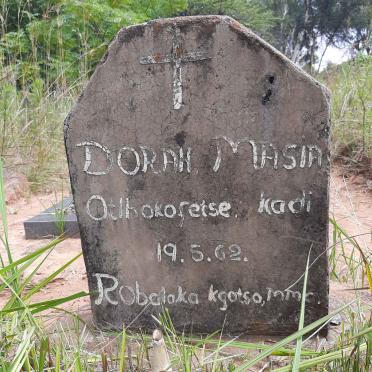 DORAH MASIA
Otlhokofetse. kadi
19.5.62.
Robalaka kgotso, mme.